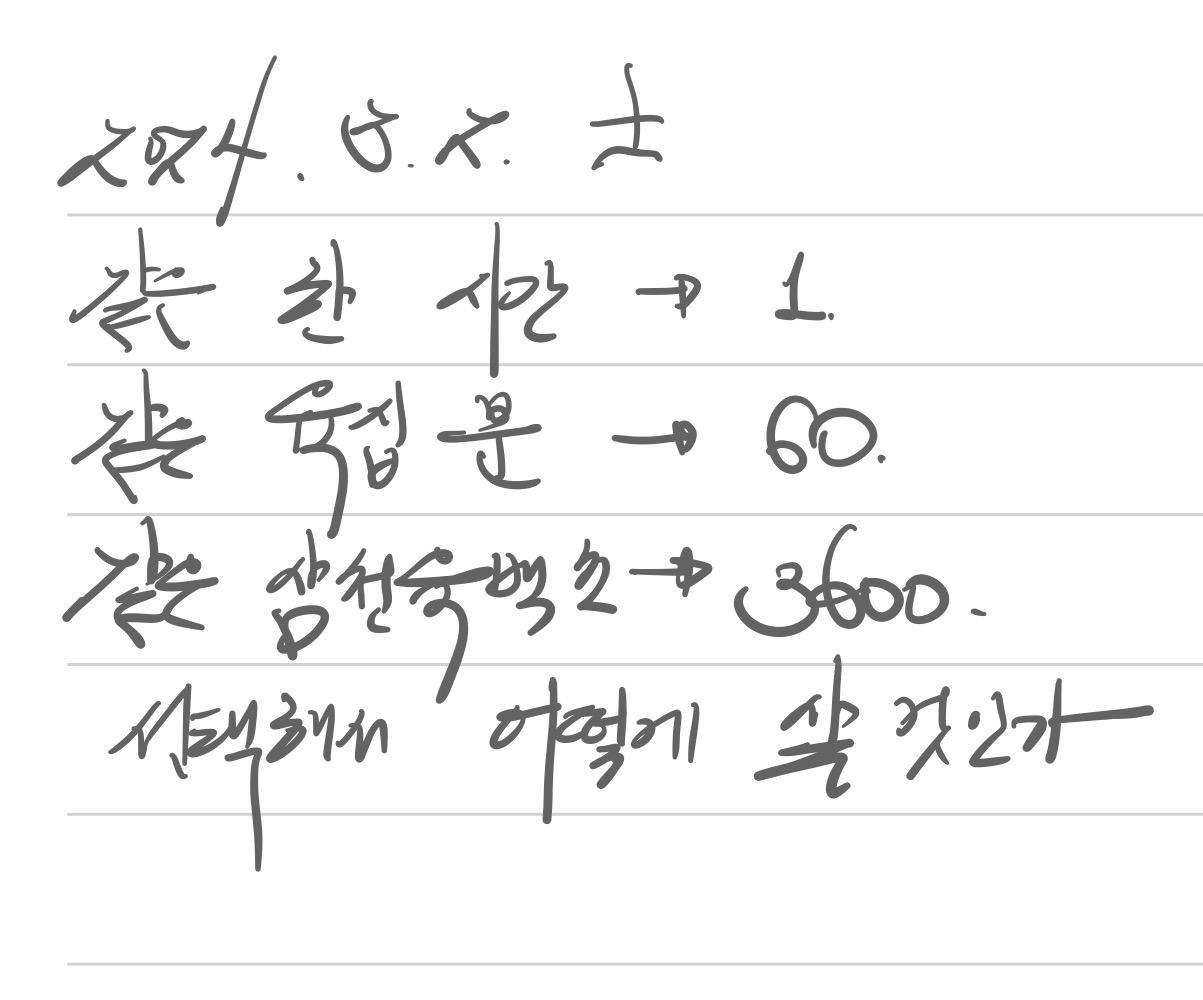 2024. 5. 2. 土
같은 한 시간 → 1.
같은 육십 분 → 60.
같은 삼천육백 초 → 3600.
선택해서 어떻게 살 것인가